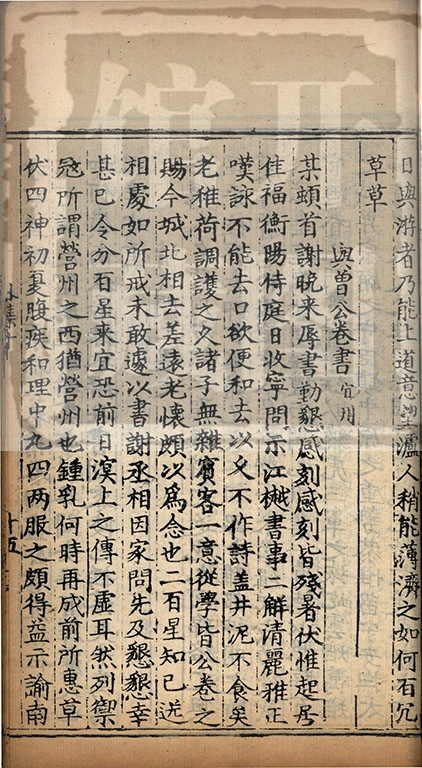 日與游者乃能上道意望瀘人稍能薄濟之如何石冗
草草
與曾公卷書宜州
某頓首謝晚来辱書勤懇感刻感刻皆殘暑伏惟起居
佳福衡陽侍庭日收寧問示江樾書事二解清麗雅正
嘆詠不能去口欲便和去以久不作詩蓋井泥不食矣
老稚荷調護之久諸子無雜賓客一意從學皆公卷之
賜今城北相去差遠老懷頗以為念也二石星知已送
相處如所戒未敢遽以書謝丞相因家問先及懇懇幸
甚已令分石星来宜恐前日溟上之傳不虛耳然列禦
冦所謂營州之西猶營州也鍾乳何時再成前所惠草
伏四神初夏腹疾和理中丸四两服之頗得益示諭南
十五